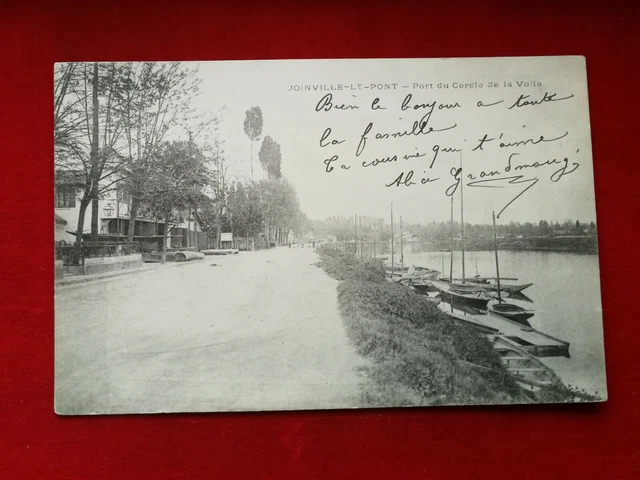 JOINVILLE-LE-PONT — Port du Cercle de la Voile
Bien le bonjour a toute
la famille
Ta cousine qui t'aime
Alice Grandmougi